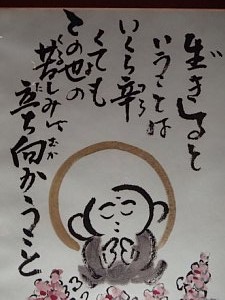 生きると
いうことは
いくら辛
つら
くても
この世の
苦しみに
くる
立ち向かうこと
た
む